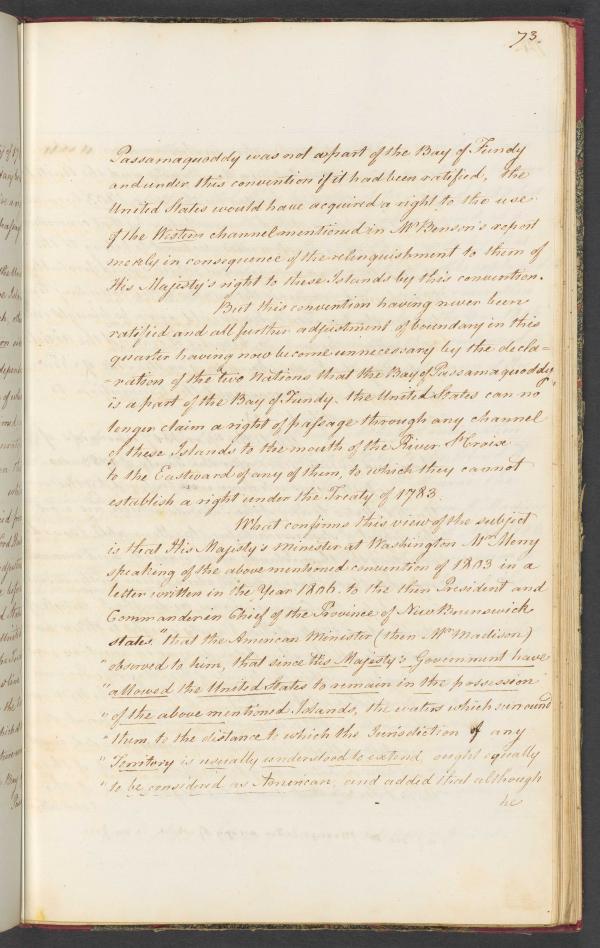 73.
Passamaquoddy was not a part of the Bay of Fundy
and under this convention if it had been ratified, the
United States would have acquired a right to the use
of the Western channel mentioned in Mr Benson's report
merely in consequence of the relinquishment to them of
His Majesty's right to these Islands by this convention.
But this convention having never been
ratified and all further adjustment of boundary in this
quarter having now become unnecessary by the decla=
=ration of the two Nations that the Bay of Passamaquoddy
is a part of the Bay of Fundy, the United States can no
longer claim a right of passage through any channel
of these Islands to the mouth of the River St Croix
to the Eastward of any of them, to which they cannot
establish a right under the Treaty of 1783.
What confirms this view of the subject
is that His Majesty's Minister at Washington Mr Merry
speaking of the above mentioned convention of 1803 in a
letter written in the Year 1806. to the then President and
Commander in Chief of the Province of New Brunswick
states, "that the American Minister (then Mr Madison)
"observed to him, that since His Majesty's Government have
"allowed the United States to remain in the possession
"of the above mentioned Islands, the waters which surround
"them to the distance to which the Jurisdiction of any
"Territory is usually understood to extend, ought equally
"to be considered as American, and added that although
he